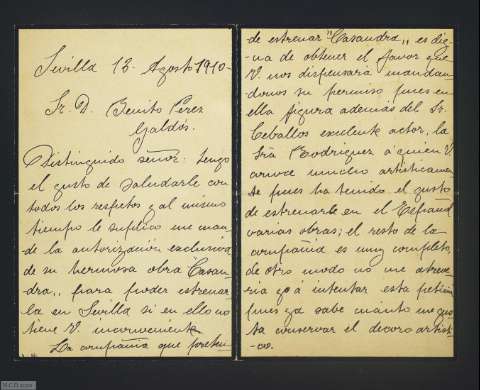 Sevilla 13 Agosto 1910-
Sr. D. Benito Perez
Galdós.
Distinguido señor: tengo
el gusto de saludarle con
todos los respetos y al mismo
tiempo le suplico me man-
de la autorización exclusiva
de su hermosa obra "Casan-
dra", para poder estrenar-
la en Sevilla si en ello no
tiene V. inconveniente
La compañia que preten-
de estrenar "Casandra" es dig-
-na de obtener el favor que
V. nos dispensará mandan-
donos su permiso pues en
ella figura además del Sr.
Ceballos exclente actor, la
Sra Rodriguez á quien V.
conoce mucho artisticamen-
te pues ha tenido el gusto
de estrenarle en el Español
varias obras; el resto de la
compañia es muy completo,
de otro modo no me atreve-
ria yo á intentar esta peticion
pues ya sabe cuánto me gus-
ta conservar el decoro artist-
-co.